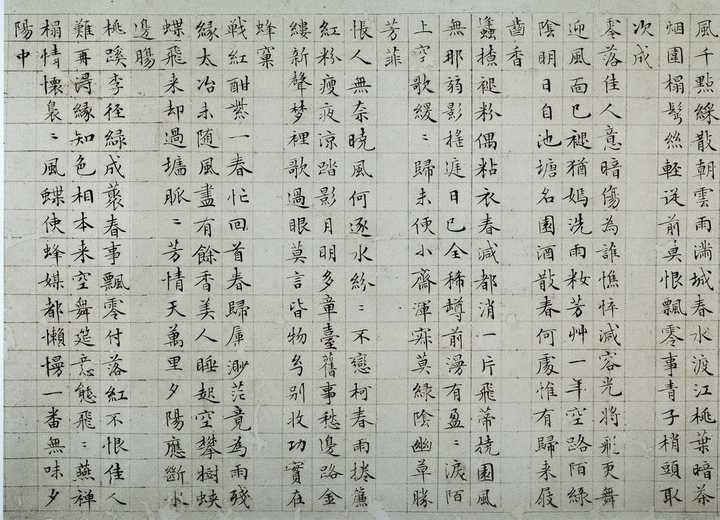 風千點綵散朝雲雨滿城春水渡江桃葉暗茶
烟圍榻鬂絲輕從前莫恨飄零事青子梢頭取
次成
零落佳人意暗傷為誰憔悴減容光將飛更舞
迎風面已褪猶嫣洗雨粧芳艸一年空路陌綠
陰明日自池塘名園酒散春何處惟有歸来屐
齒香
褪粉偶粘衣春減都消一片飛蒂撓園風
無那弱影搖庭日已全稀樽前漫有盈〻淚陌
上空歌緩〻歸未便小齋渾寂莫綠陰幽草勝
芳菲
悵人無奈曉風何逐水紛〻不戀柯春雨捲簾
紅粉瘦夜涼踏影月明多章臺舊事愁邊路金
縷新聲梦裡歌過眼莫言皆物别收功實在
蜂窠
戦紅酣紫一春忙回首春歸屬渺茫竟為雨殘
緣太冶未随風盡有餘香美人睡起空攀樹蛺
蝶飛来却過墻脉〻芳情天萬里夕陽應斷水
邊腸
桃蹊李徑綠成叢春事飄零付落紅不恨佳人
難再淂緣知色相本来空舞筵意態飛〻燕禅
榻情懷裊〻風蝶使蜂媒都懶慢一番無味夕
陽中